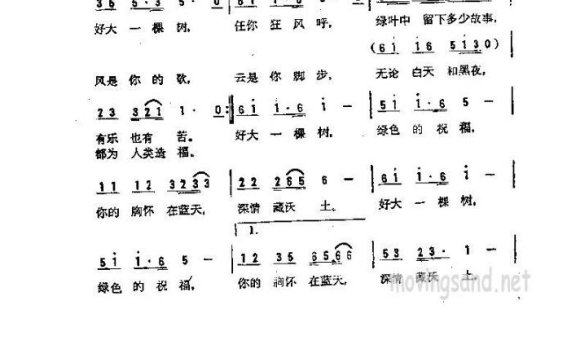 好大 一 棵 树， 任你 狂 风 呼， 绿叶中 留下多少故事，
(6i i6 5i30)
风是 你 的 歌， 云是 你 脚 步， 无论 白天 和黑夜，
23 321 1· 0 :‖ 6i i·6 i − | 5i i·6 5 − |
有乐 也有 苦。 好大 一 棵 树， 绿色 的 祝 福，
都为 人类造 福。
11 12 3233 | 22 265 6 − | 6i i·6 i − |
你的 胸怀 在蓝天， 深情 藏沃 土。 好大 一 棵 树，
1.
5i i·6 5 − | 12 35 6566 | 53 23· 1 − |
绿色 的 祝 福， 你的 胸怀 在蓝天， 深情 藏沃 土
movingsand.net